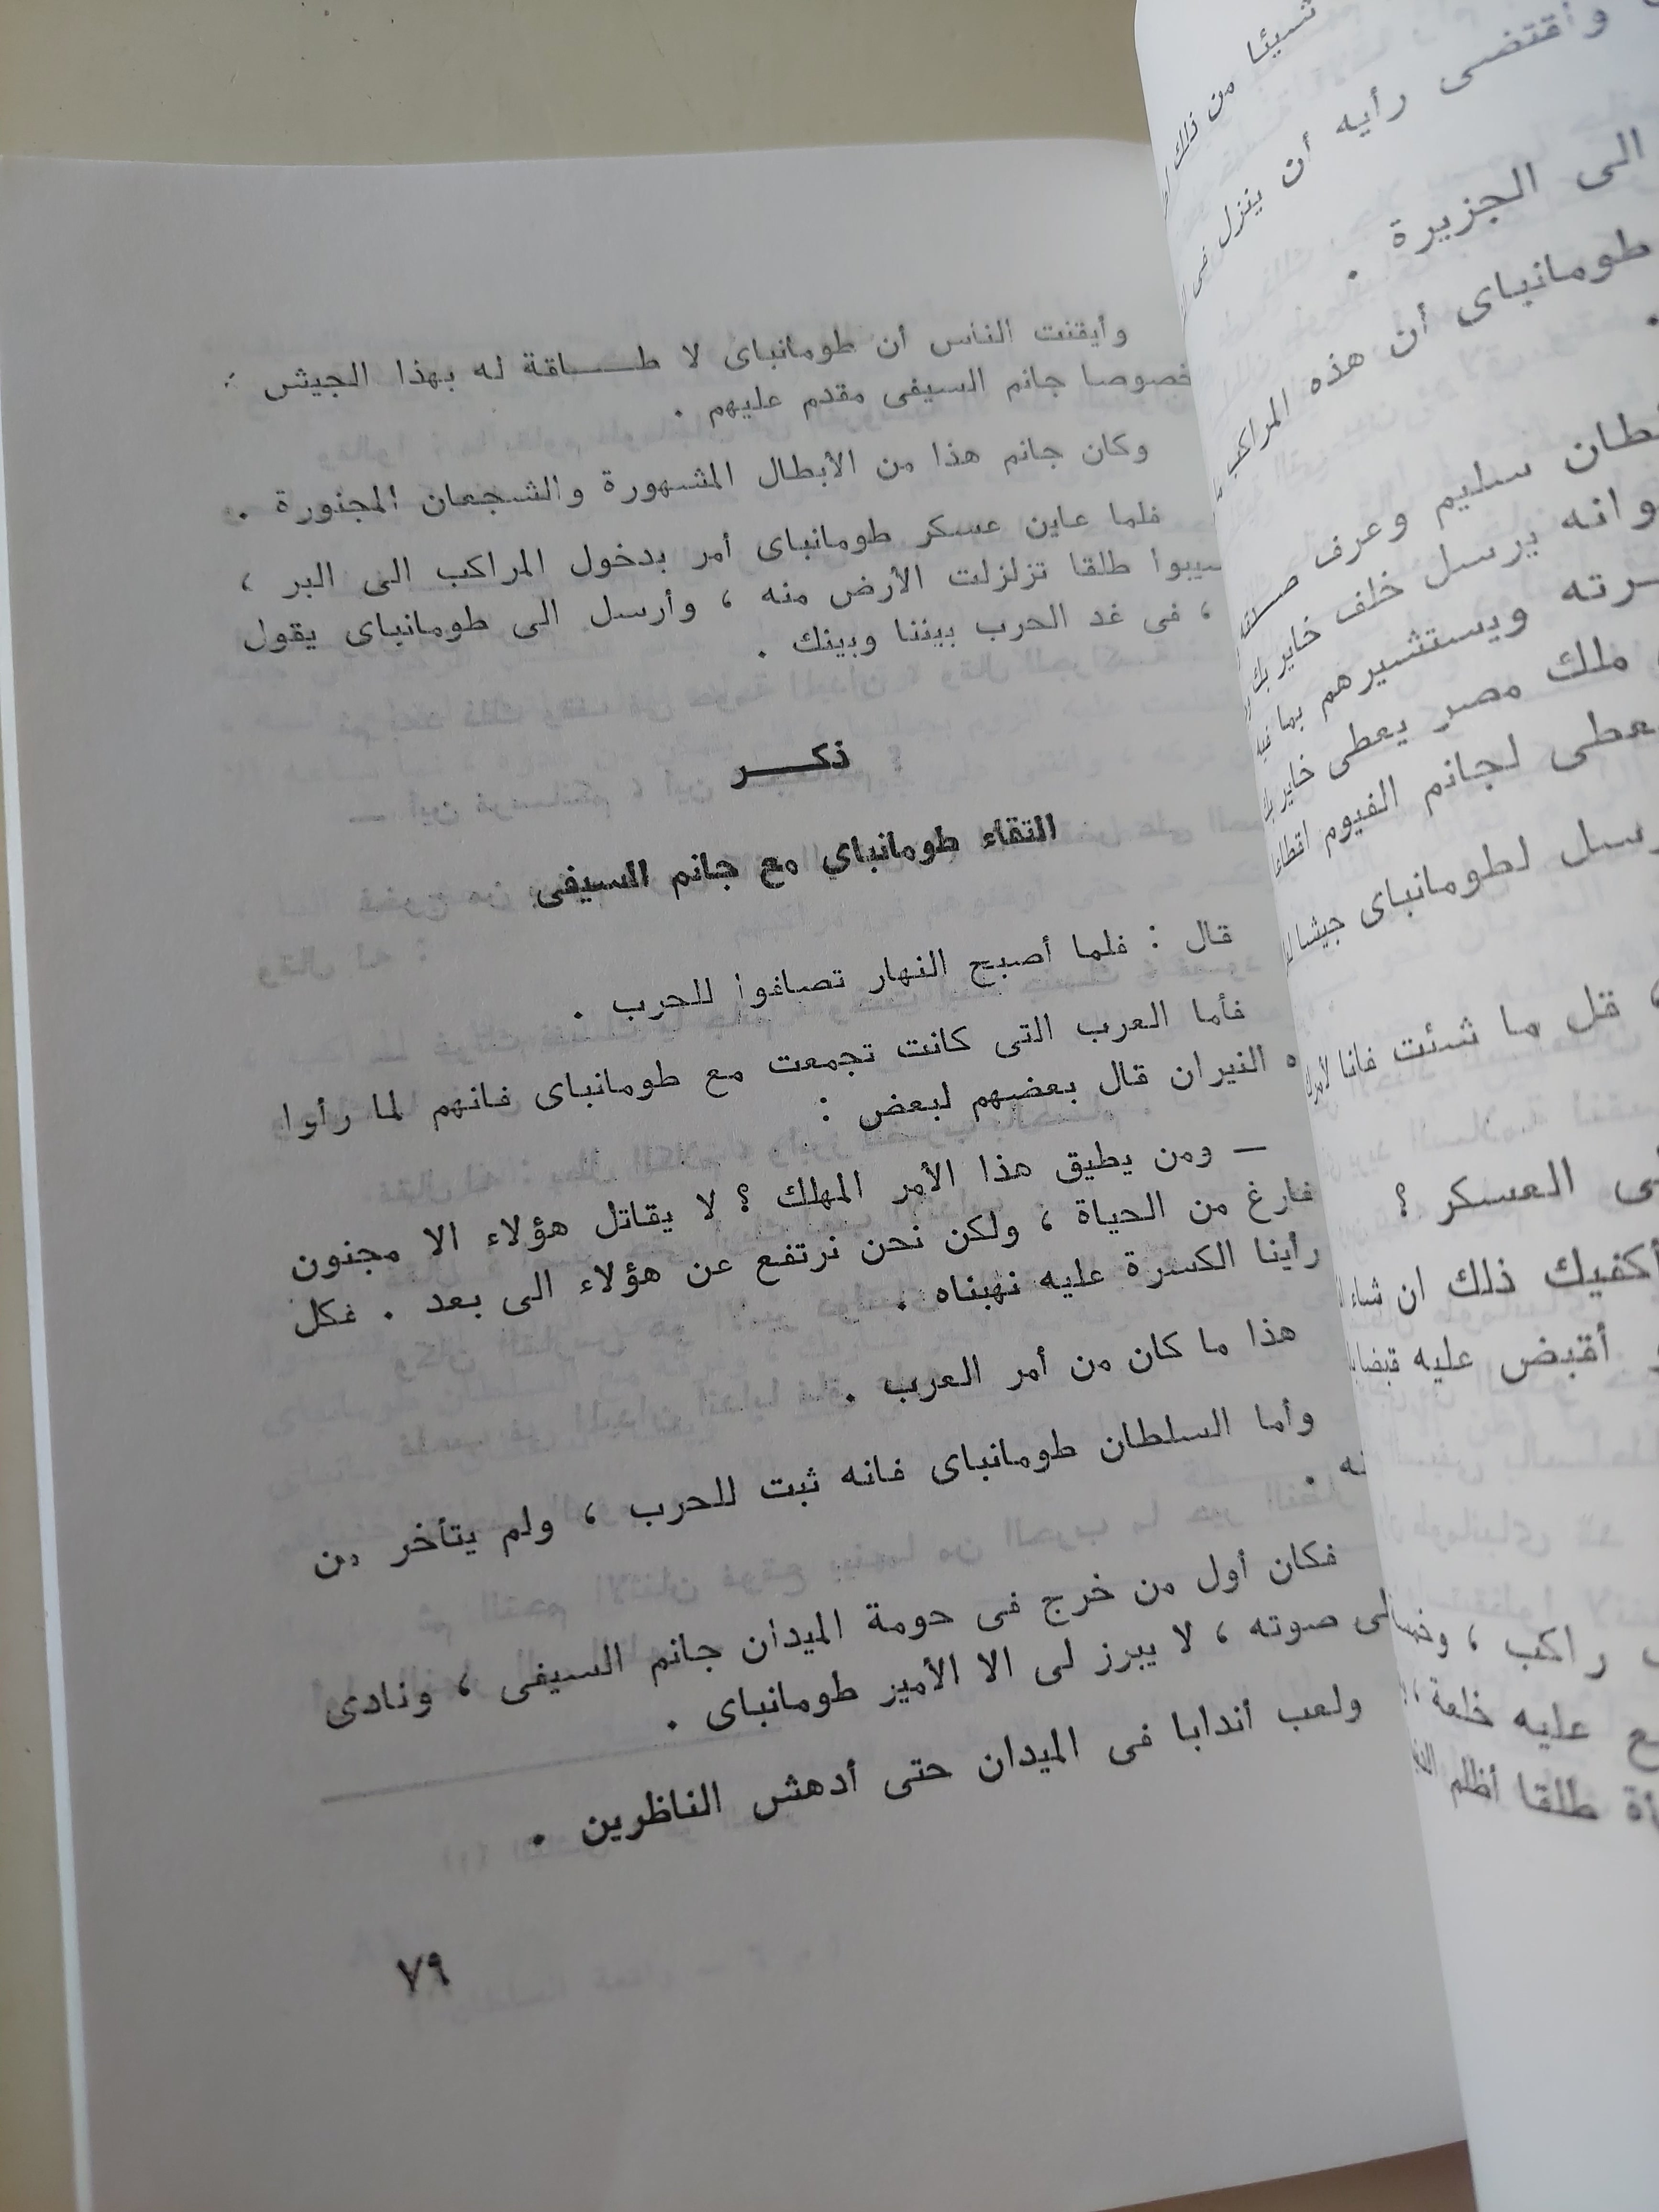 وأيقنت الناس أن طومانباى لا طــــاقة له بهذا الجيش :
خصوصا جانم السيفى مقدم عليهم .
وكان جانم هذا من الأبطال المشهورة والشجعان المجنورة .
فلما عاين عسكر طومانباى أمر بدخول المراكب الى البر ،
سيبوا طلقا تزلزلت الأرض منه ، وأرسل الى طومانباى يقول
، فى غد الحرب بيننا وبينك .
ذكـــــر
التقاء طومانباي مع جانم السيفى
قال : فلما أصبح النهار تصافوا للحرب .
فأما العرب التى كانت تجمعت مع طومانباى فانهم لما رأوا
ه النيران قال بعضهم لبعض :
— ومن يطيق هذا الأمر المهلك ؟ لا يقاتل هؤلاء الا مجنون
فارغ من الحياة ، ولكن نحن نرتفع عن هؤلاء الى بعد . فكل
رأينا الكسرة عليه نهبناه .
هذا ما كان من أمر العرب .
وأما السلطان طومانباى فانه ثبت للحرب ، ولم يتأخر من
نه .
فكان أول من خرج فى حومة الميدان جانم السيفى ، ونادى
لى صوته ، لا يبرز لى الا الأمير طومانباى .
ولعب أندابا فى الميدان حتى أدهش الناظرين .
٧٩
شيئا من ذلك
وأقتضى رأيه أن ينزل فى
الى الجزيرة .
طومانباى أن هذه المراكب
سليم وعرف
وانه يرسل خلف خاير بك
ويستشيرهم بما فيه
ملك مصر يعطى خاير بك
لجانم الفيوم اقطاعا
لطومانباى جيشا
، قل ما شئت فانا لأمرك
العسكر ؟
أكفيك ذلك ان شاء
أقبض عليه قبضا
راكب ،
عليه خلعة ،
طلقا أظلم